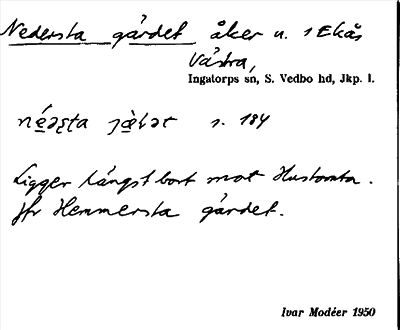 Nedersta gärdet åker u. 1 Ekås
Västra,
Ingatorps sn, S. Vedbo hd, Jkp. l.
s. 184
Ligger längst bort mot Hustomta.
Jfr Hemmersta gärdet.
Ivar Modéer 1950